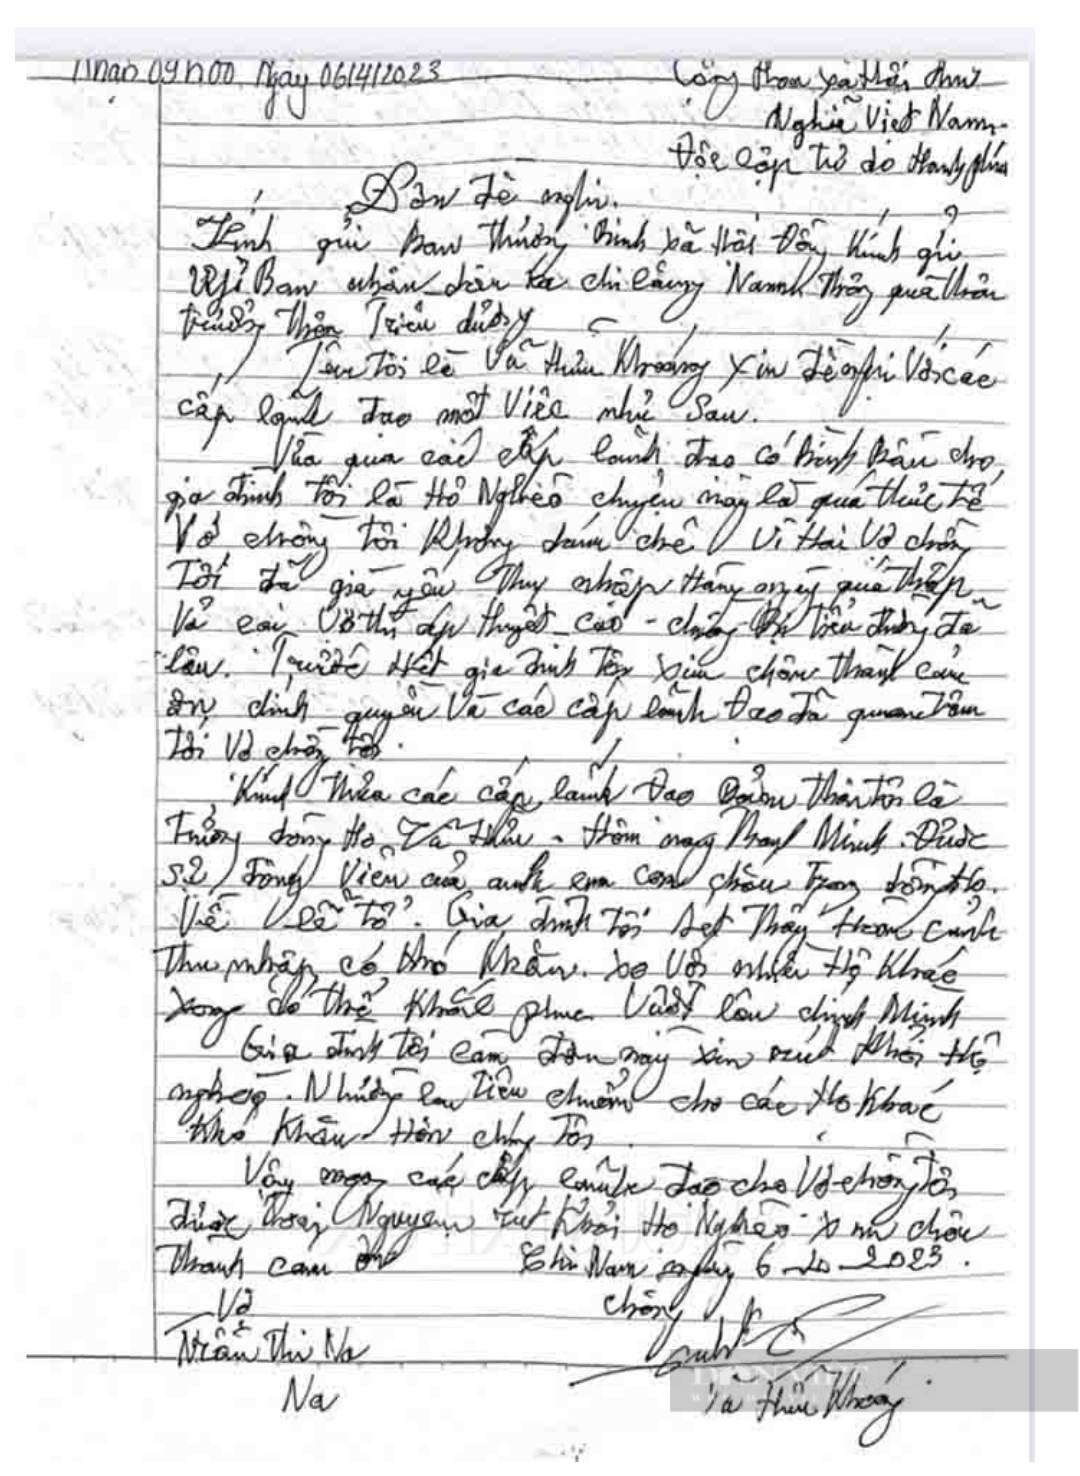 Nhận 09h00, Ngày 06/4/2023
Cộng Hòa Xã Hội Chủ
Nghĩa Việt Nam
Độc lập tự do Hạnh phúc
Đơn đề nghị.
Kính gửi Ban thương Binh xã Hội Đồng kính gửi
Uỷ Ban nhân dân xã chi Lăng Nam Thông qua thôn
trưởng thôn Triều dương
Tên tôi là Vũ Hữu Khoáng xin đề nghị Với các
cấp lãnh đạo một Việc như Sau.
Vừa qua các cấp lãnh đạo có Bình Bầu cho
gia đình tôi là Hộ Nghèo chuyện này là quá thực tế
Vợ chồng tôi Không dám chê Vì Hai Vợ chồng
Tôi đã già yếu Thu nhập Hàng ngày quá thấp
Vả lại Vợ thì áp thuyết cao - chồng Bị tiểu đường đã
lâu. Trước Hết gia đình tôi xin chân thành cảm
ơn chính quyền Và các cấp lãnh Đạo đã quan tâm
tới Vợ chồng tôi.
Kính thưa các cấp lãnh Đạo Bản thân tôi là
trưởng dòng Họ Vũ Hữu - Hôm nay Được
sự động Viên của anh em con cháu Trong dòng Họ.
Về lễ tổ. Gia đình tôi xét Thấy Hoàn cảnh
Thu nhập có Khó Khăn. so Với nhiều Hộ Khác
xong có thể Khắc phục Vượt lên chính Mình
Gia đình tôi làm đơn này xin rút Khỏi Hộ
nghèo. Nhường lại Tiêu chuẩn cho các Hộ Khác
Khó Khăn Hơn chúng Tôi
Vậy mong các cấp lãnh đạo cho Vợ chồng Tôi
được Nguyện rút Khỏi Hộ Nghèo xin chân
Thành cảm ơn
Chi Nam ngày 6-10-2023.
Vợ
chồng
Trần Thị Na
Na
Vũ Hữu Khoáng